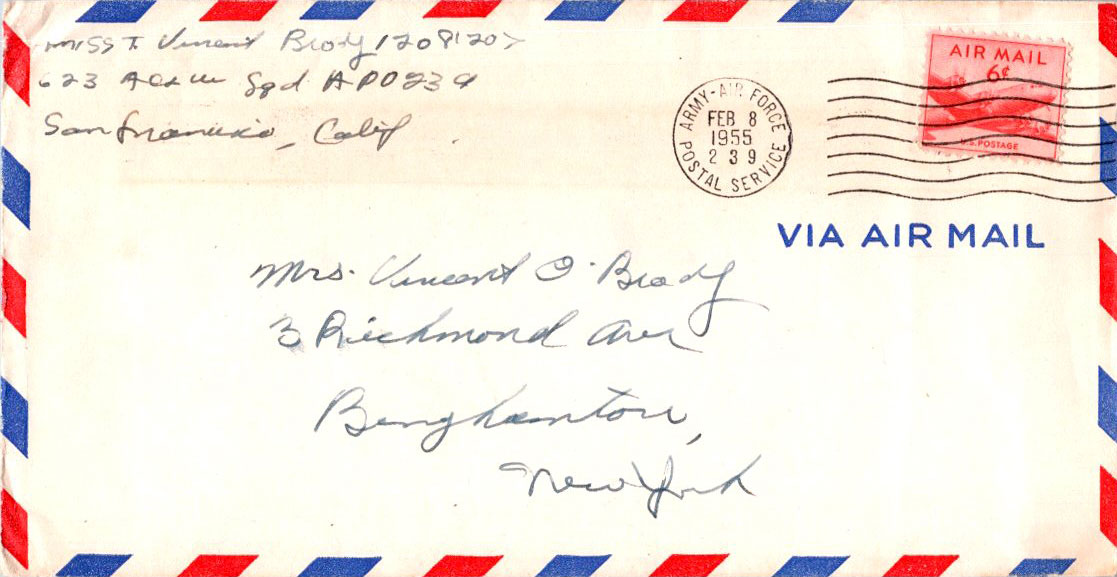 M/SGT Vincent Brody 12081207
623 AC&W Sqd APO 239
San Francisco, Calif
ARMY-AIR FORCE
FEB 8
1955
239
POSTAL SERVICE
AIR MAIL
6¢
U.S. POSTAGE
VIA AIR MAIL
Mrs. Vincent O. Brody
3 Richmond Ave
Binghamton,
New York